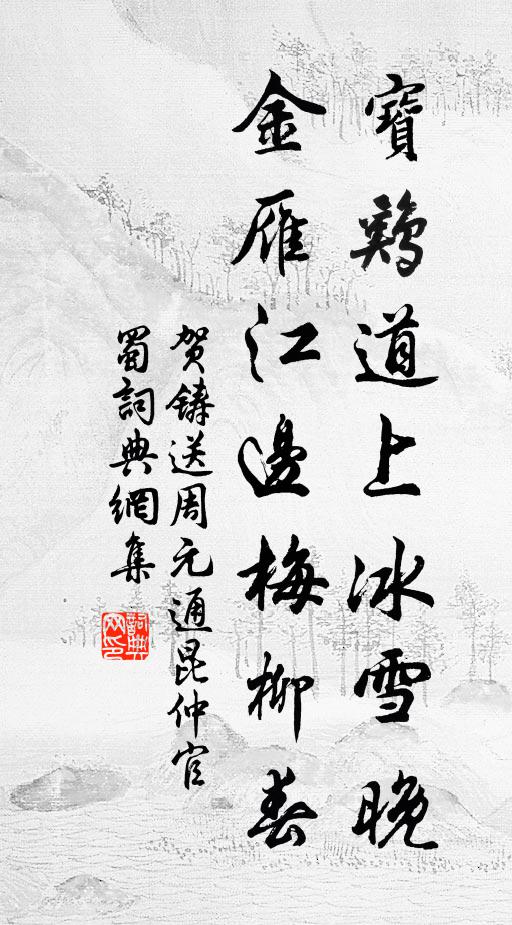 寶鷄道上冰雪晚
金雁江邊梅柳春
賀鑄送周元通昆仲官
蜀詞典網集
詞典
网印